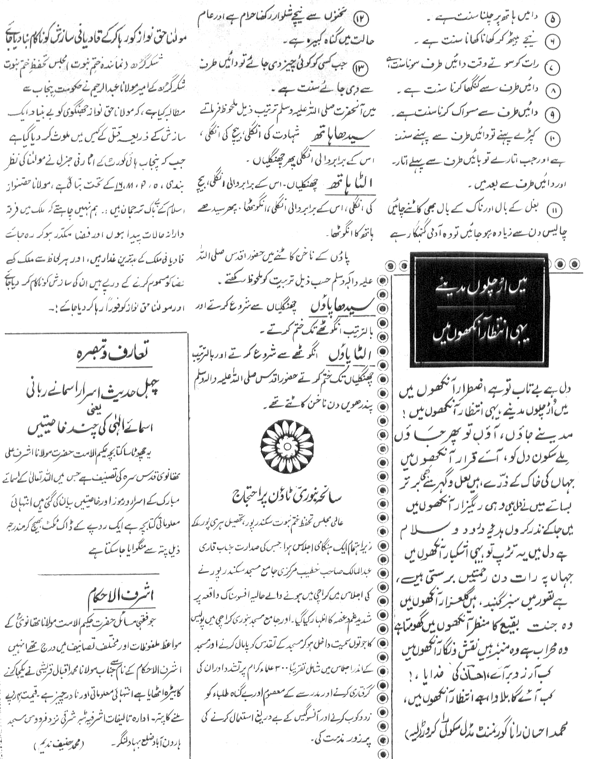 ⑤ دائیں ہاتھ پر چلنا سنت ہے ۔
⑥ نیچے بیٹھ کر کھانا کھانا سنت ہے ۔
⑦ رات کو سوتے وقت دائیں طرف سونا سنت ہے
⑧ دائیں طرف سے کنگھا کرنا سنت ہے ۔
⑨ دائیں طرف سے مسواک کرنا سنت ہے ۔
⑩ کپڑے پہنے تو دائیں طرف سے پہنے سنت
ہے اور جب اتارے تو بائیں طرف سے پہلے اتار۔
اور دائیں طرف سے بعد میں ۔
⑪ بغل کے بال اور ناک کے بال بھی کاٹنے چاہئیں
چالیس دن سے زیادہ ہو جائیں تو وہ آدمی گنہگار ہے
میں اڑ چلوں مدینے
یہی انتظار آنکھوں میں
دل ہے بے تاب تو ہے اضطرار آنکھوں میں
میں اڑ چلوں مدینے یہی انتظار آنکھوں میں !
مدینے جاؤں ، آؤں تو پھر جاؤں
ملے سکون دل کو ، آئے قرار آنکھوں میں
جہاں کی خاک کے ذرے ہیں لعل و گہر سے بڑھ کر
بسائے میں نے وہی ریگزار آنکھوں میں
میں جا کے نذر کروں ہدیۂ درود و سلام
ہے دل میں یہ تڑپ تو یہی اشکبار آنکھوں میں
جہاں پہ رات دن رحمتیں برستی ہیں ،
ہے تصور میں سبز گنبد ، گلعزار آنکھوں میں
وہ جنت بقیع کا منظر آنکھوں میں گھومتا ہے
وہ محراب ہے وہ منبر ہیں نقش و نگار آنکھوں میں
کب آرزو بر آئے ، احسان کی خدایا ، !
کب آئے گا بلاوا ہے انتظار آنکھوں میں ،
محمد احسان رانا گورنمنٹ مڈل سکول کروڑ (لیہ)
⑫ ٹخنوں سے نیچے شلوار رکھنا حرام ہے اور عام
حالت میں گناہ کبیرہ ہے ۔
⑬ جب کسی کو کوئی چیز دی جائے تو دائیں طرف
سے دی جائے سنت ہے ۔
میں آنحضرت صلی اللہ علیہ وسلم ترتیب ذیل ملحوظ فرماتے
سیدھا ہاتھ شہادت کی انگلی ، بیچ کی انگلی ،
اس کے برابر والی انگلی پھر چھنگلیاں ۔
الٹا ہاتھ چھنگلیاں ، اس کے برابر والی انگلی ، بیچ
کی انگلی ، اس کے برابر والی انگلی ، انگوٹھا ، پھر سیدھے
ہاتھ کا انگوٹھا ۔
پاؤں کے ناخن کاٹنے میں حضور اقدس صلی اللہ
علیہ وآلہ وسلم حسب ذیل ترتیب کو ملحوظ رکھتے ۔
سیدھا پاؤں چھنگلیاں سے شروع کرتے اور
بالترتیب انگوٹھے تک ختم کرتے ۔
الٹا پاؤں انگوٹھے سے شروع کرتے اور بالترتیب
چھنگلیاں تک ختم کرتے حضور اقدس صلی اللہ علیہ وآلہ وسلم
پندرھویں دن ناخن کاٹتے تھے ۔
سانحہ بنوری ٹاؤن پر احتجاج
عالمی مجلس تحفظ ختم نبوت سکندر پور تحصیل ہری پور کے
زیر اہتمام ایک ہنگامی اجلاس ہوا جس کی صدارت جناب قاری
عبدالمالک صاحب خطیب مرکزی جامع مسجد سکندر پور نے
کی اجلاس میں کراچی میں ہونے والے حالیہ افسوسناک واقعہ پر
شدید غم و غصہ کا اظہار کیا گیا ، اور جامع مسجد بنوری کراچی میں پولیس
کا جوتوں سمیت داخل ہو کر مسجد کے تقدس کو پامال کرنے اور مسجد
کے اندر اجلاس میں شامل تقریباً ۳۰۰ علماء کرام پر تشدد اور ان کی
گرفتاری کرنے اور مدرسے کے معصوم اور بے گناہ طلباء کو
زد و کوب کرنے اور آنسو گیس کے بے دریغ استعمال کرنے کی
پر زور مذمت کی ۔
مولانا حق نواز کو رہا کر کے قادیانی سازش کو ناکام بنا دیا جائے
شکر گڑھ ( نمائندہ ختم نبوت ) مجلس تحفظ ختم نبوت
شکر گڑھ کے امیر مولانا عبدالرحیم نے حکومت پنجاب سے
مطالبہ کیا ہے ، کہ مولانا حق نواز جھنگوی کو بے بنیاد ایک
سازش کے ذریعہ قتل کے کیس میں ملوث کر دیا گیا ہے
جب کہ پنجاب ہائی کورٹ کے اٹارنی جنرل نے مولانا کی نظر
بندی کے تحت بتائی ہے ، مولانا حق نواز
اسلام کے بیباک ترجمان ہیں ، ہم نہیں چاہتے کہ ملک میں فرقہ
وارانہ حالات پیدا ہوں اور فضا مکدر ہو کر رہ جائے
قادیانی ملک کے بدترین غدار ہیں ، اور ہر لحاظ سے ملک کے
فضا کو مسموم کرنے کے درپے ہیں ان کی سازش کو ناکام کر دیا جائے
اور مولانا حق نواز کو فوراً رہا کر دیا جائے !
تعارف و تبصرہ
چہل حدیث اسرار اسمائے ربانی
یعنی
اسمائے الٰہی کی چند خاصیتیں
یہ چھوٹا سا کتابچہ حکیم الامت حضرت مولانا اشرف علی
تھانوی قدس سرہ کی تصنیف ہے جس میں اللہ تعالیٰ کے اسمائے
مبارک کے اسرار و رموز اور خاصیتیں بیان کی گئی ہیں انتہائی
معلوماتی کتابچہ ہے ایک روپے کے ڈاک ٹکٹ بھیج کر مندرجہ
ذیل پتہ سے منگوایا جا سکتا ہے
اشرف الاحکام
جو فقہی مسائل حضرت حکیم الامت مولانا تھانوی کے
مواعظ ملفوظات اور مختلف تصانیف میں درج تھے انہیں
اشرف الاحکام کے نام سے جناب مولانا محمد اقبال قریشی نے یکجا کرنے
کا بیڑہ اٹھایا ہے انتہائی معلوماتی اور نادر چیز ہے ۔ قیمت روپے
ملنے کا پتہ ۔ ادارہ تالیفات اشرفیہ شرقی نزد فردوس مسجد
ہارون آباد ضلع بہاولنگر ۔ (محمد حنیف ندیم)